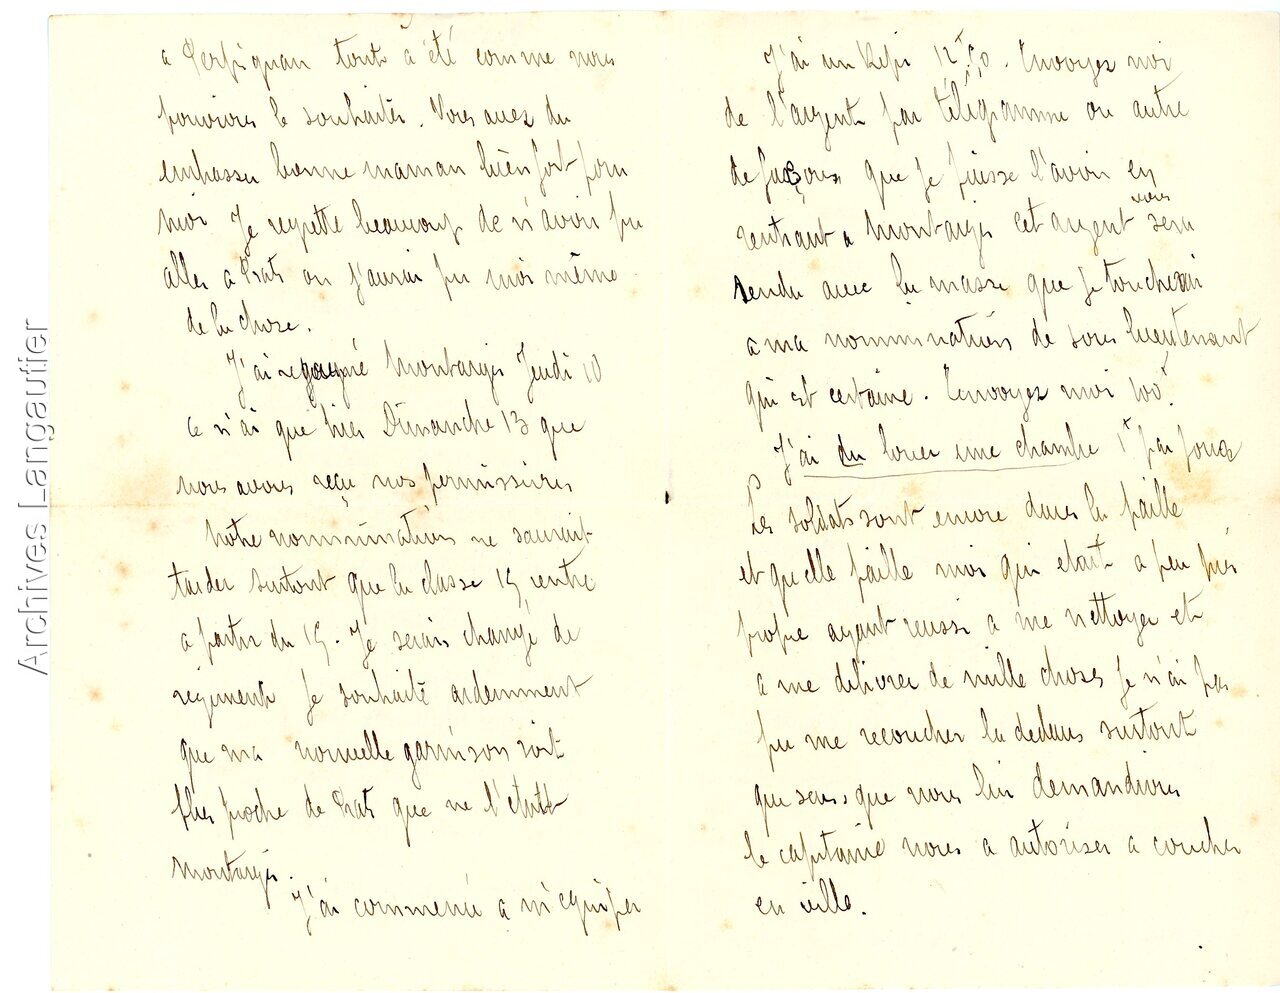 a Perpignan tout a été comme nous
pouvions le souhaiter. Vous avez du
embrasser bonne maman bien fort pour
moi. Je regrette beaucoup de n'avoir pu
aller a Prats ou j'aurai pu moi même
de la chose.
J'ai regagné Montargis Jeudi 10
ce n'ai que hier Dimanche 13 que
nous avons reçu nos permissions
Notre nommination ne saurait
tarder surtout que la classe 15 rentre
a partir du 15. Je serais changé de
regiment je souhaite ardemment
que ma nouvelle garnison soit
plus proche de Prats que ne l'etait
Montargis.
J'ai commencé a m'equiper
J'ai un Kepi 12f,50. Envoyez moi
de l'argent par télégramme ou autre
de façons que je puisse l'avoir en
rentrant a Montargis cet argent vous sera
rendu avec la masse que je toucherai
a ma nommination de sous lieutenant
qui est certaine. Envoyez moi 100f.
J'ai du louer une chambre 1f par jour
Les soldats sont encore dans la paille
et quelle paille moi qui etait a peu près
propre ayant reussi a me nettoyer et
a me délivrer de mille choses je n'ai pas
pu me recoucher la dedans surtout
que sans que nous lui demandions
le capitaine nous a autoriser a coucher
en ville.
Archives Langautier